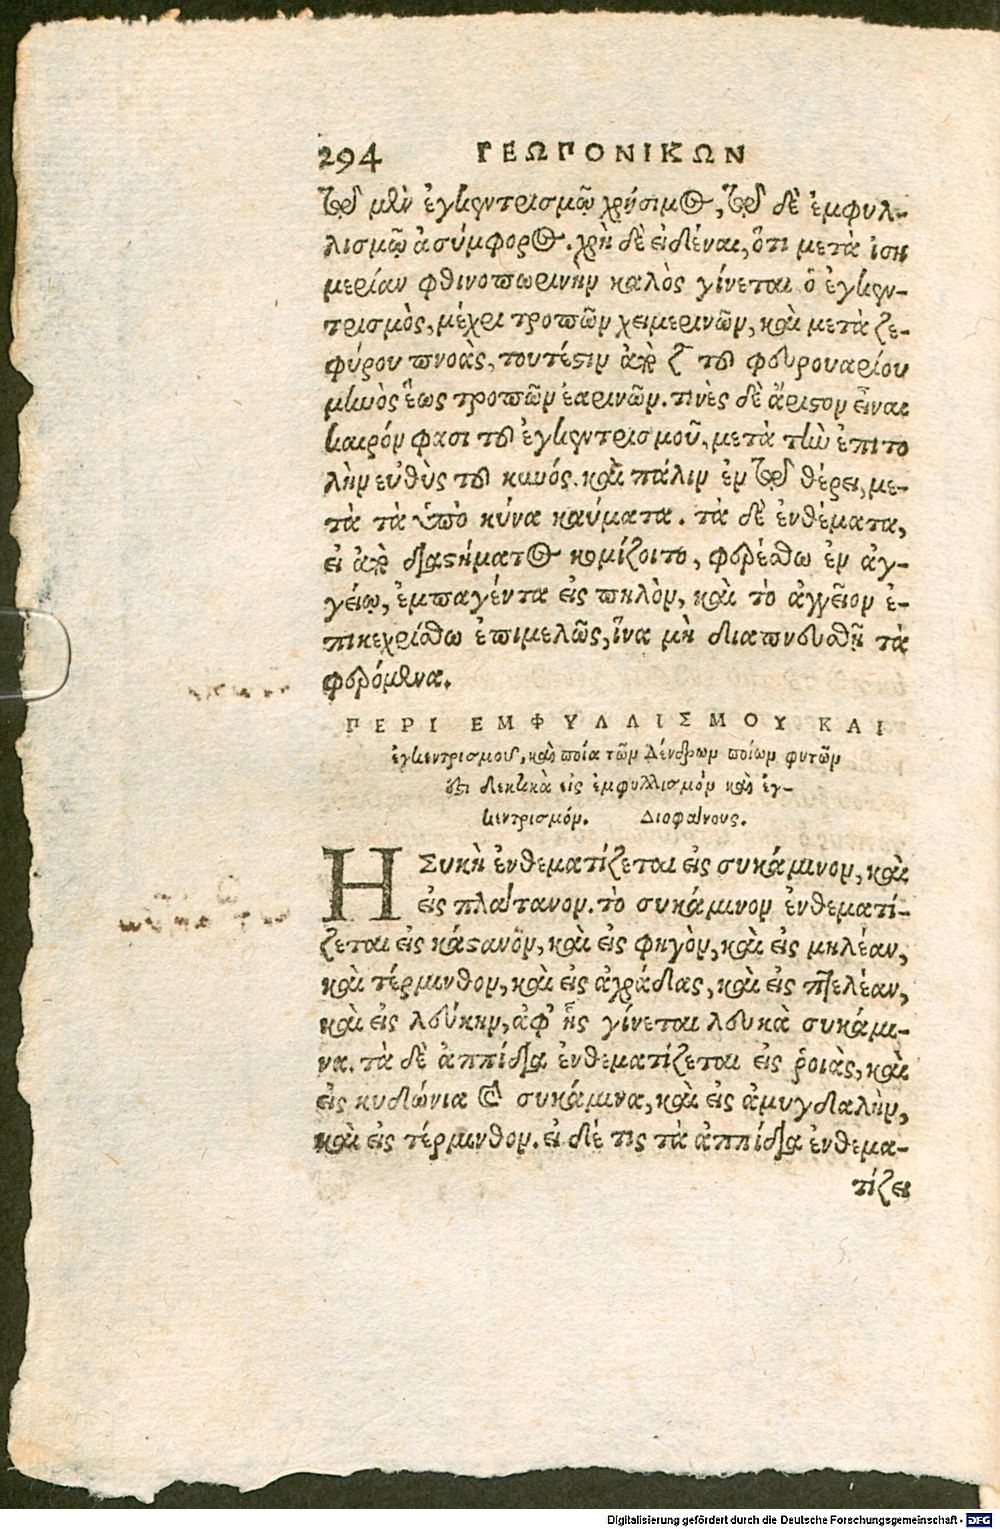 294 ΓΕΩΠΟΝΙΚΩΝ
τῷ μὲν ἐγκεντρισμῷ χρήσιμος, τῷ δὲ ἐμφυλ-
λισμῷ ἀσύμφορος. χρὴ δὲ εἰδέναι, ὅτι μετὰ ἰση
μερίαν φθινοπωρινὴν καλὸς γίνεται ὁ ἐγκεν-
τρισμὸς, μέχρι τροπῶν χειμερινῶν, καὶ μετὰ ζε-
φύρου πνοὰς, τουτέστιν ἀπὸ ζ τοῦ φευρουαρίου
μηνὸς ἕως τροπῶν ἐαρινῶν. τινὲς δὲ ἄριστον εἶναι
καιρόν φασι τοῦ ἐγκεντρισμοῦ, μετὰ τὴν ἐπιτο
λὴν εὐθὺς τοῦ κυνός. καὶ πάλιν ἐν τῷ θέρει, με-
τὰ τὰ ὑπὸ κύνα καύματα. τὰ δὲ ἐνθέματα,
εἰ ἀπὸ διαστήματος κομίζοιτο, φερέσθω ἐν ἀγ-
γείῳ, ἐμπαγέντα εἰς πηλὸν, καὶ τὸ ἀγγεῖον ἐ-
πικεχρίσθω ἐπιμελῶς, ἵνα μὴ διαπνευσθῇ τὰ
φερόμενα.
ΠΕΡΙ ΕΜΦΥΛΛΙΣΜΟΥ ΚΑΙ
ἐγκεντρισμοῦ, καὶ ποῖα τῶν δένδρων ποίων φυτῶν
ἐστι δεκτικὰ εἰς ἐμφυλλισμὸν καὶ ἐγ-
κεντρισμόν. Διοφάνους.
Η Συκὴ ἐνθεματίζεται εἰς συκάμινον, καὶ
εἰς πλάτανον. τὸ συκάμινον ἐνθεματί-
ζεται εἰς κάστανον, καὶ εἰς φηγὸν, καὶ εἰς μηλέαν,
καὶ τέρμινθον, καὶ εἰς ἀχράδας, καὶ εἰς πτελέαν,
καὶ εἰς λεύκην, ἀφ' ἧς γίνεται λευκὰ συκάμι-
να. τὰ δὲ ἀππίδια ἐνθεματίζεται εἰς ῥοιὰς, καὶ
εἰς κυδώνια καὶ συκάμινα, καὶ εἰς ἀμυγδαλὴν,
καὶ εἰς τέρμινθον. εἰ δέ τις τὰ ἀππίδια ἐνθεμα-
τίζει
Digitalisierung gefördert durch die Deutsche Forschungsgemeinschaft - DFG